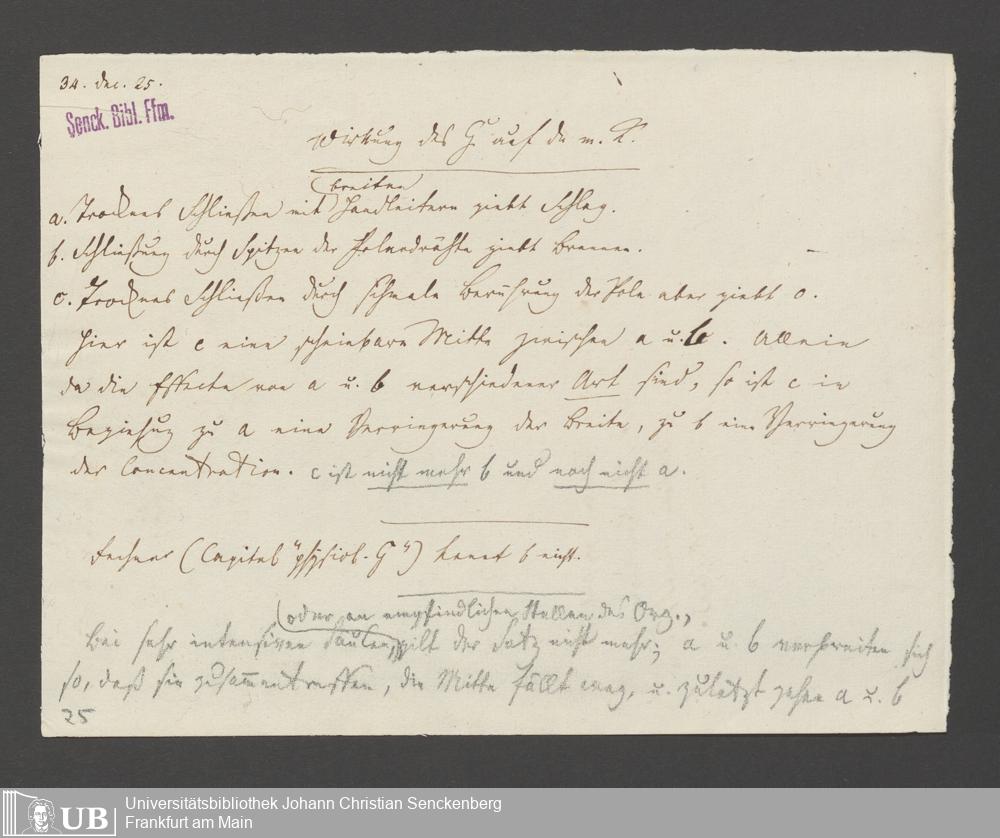 34. dec. 25.
Senck. Bibl. Ffm.
Wirkung des G. auf den m. K.
a. Trocknes Schließen mit breiten Handleitern giebt Schlag.
b. Schließung durch Spitzen der Polardrähte giebt Brennen.
c. Trocknes Schließen durch schmale Berührung der Pole aber giebt o.
Hier ist c eine scheinbare Mitte zwischen a u. b. Allein
da die Effecte von a u. b verschiedener Art sind, so ist c in
Beziehung zu a eine Verringerung der Breite, zu b eine Verringerung
der Concentration. c ist nicht mehr b und noch nicht a.
Fechner (Capitel "physiol. G") kennt b nicht.
(oder an empfindlichen Stellen des Org.,
Bei sehr intensiven Säulen, gilt der Satz nicht mehr; a u. b verbreiten sich
so, daß sie zusammentreffen, die Mitte fällt weg, u. zuletzt gehen a u. b
25
UB
Universitätsbibliothek Johann Christian Senckenberg
Frankfurt am Main